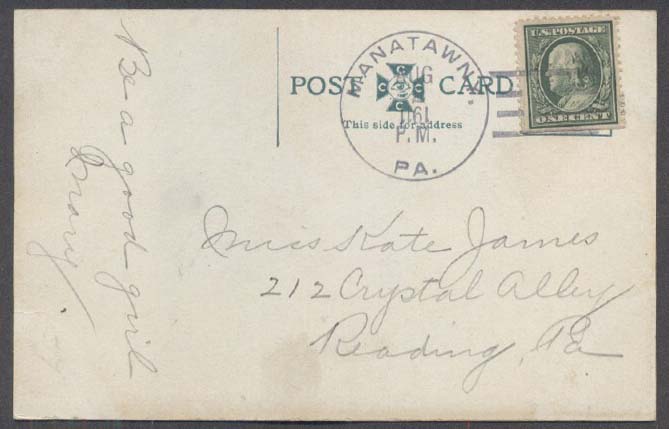 Be a good girl
POST CARD
This side for address
MANATAWNY
AUG
P.M.
PA.
U.S. POSTAGE
ONE CENT
C
C C
C
Miss Kate James
212 Crystal Alley
Reading, Pa